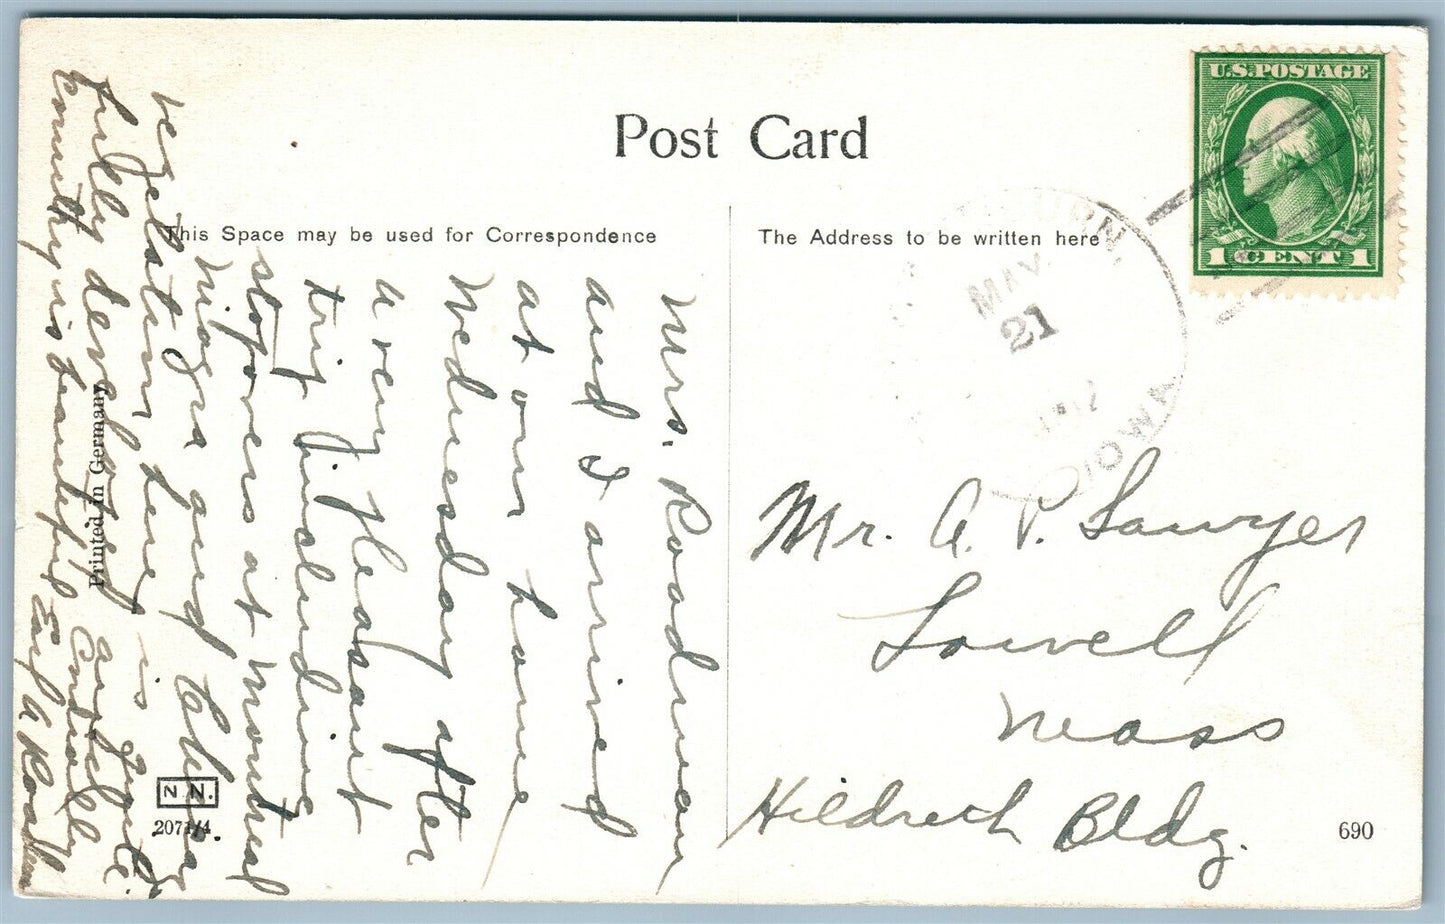 Post Card
This Space may be used for Correspondence
The Address to be written here
U.S. POSTAGE
1 CENT 1
MAY
21
OKMA
Mr. A. P. Sawyer
Lowell
Mass
Hildreth Bldg.
690
Mrs. Roadman
and I arrived
at our home
Wednesday after
a very pleasant
trip including
stopovers at Montreal
Niagra and Chicago
vegetation here is quite
fully developed and
Country is beautiful Cordially
Earl A Roadman
Printed in Germany
N.N.
2071/4.